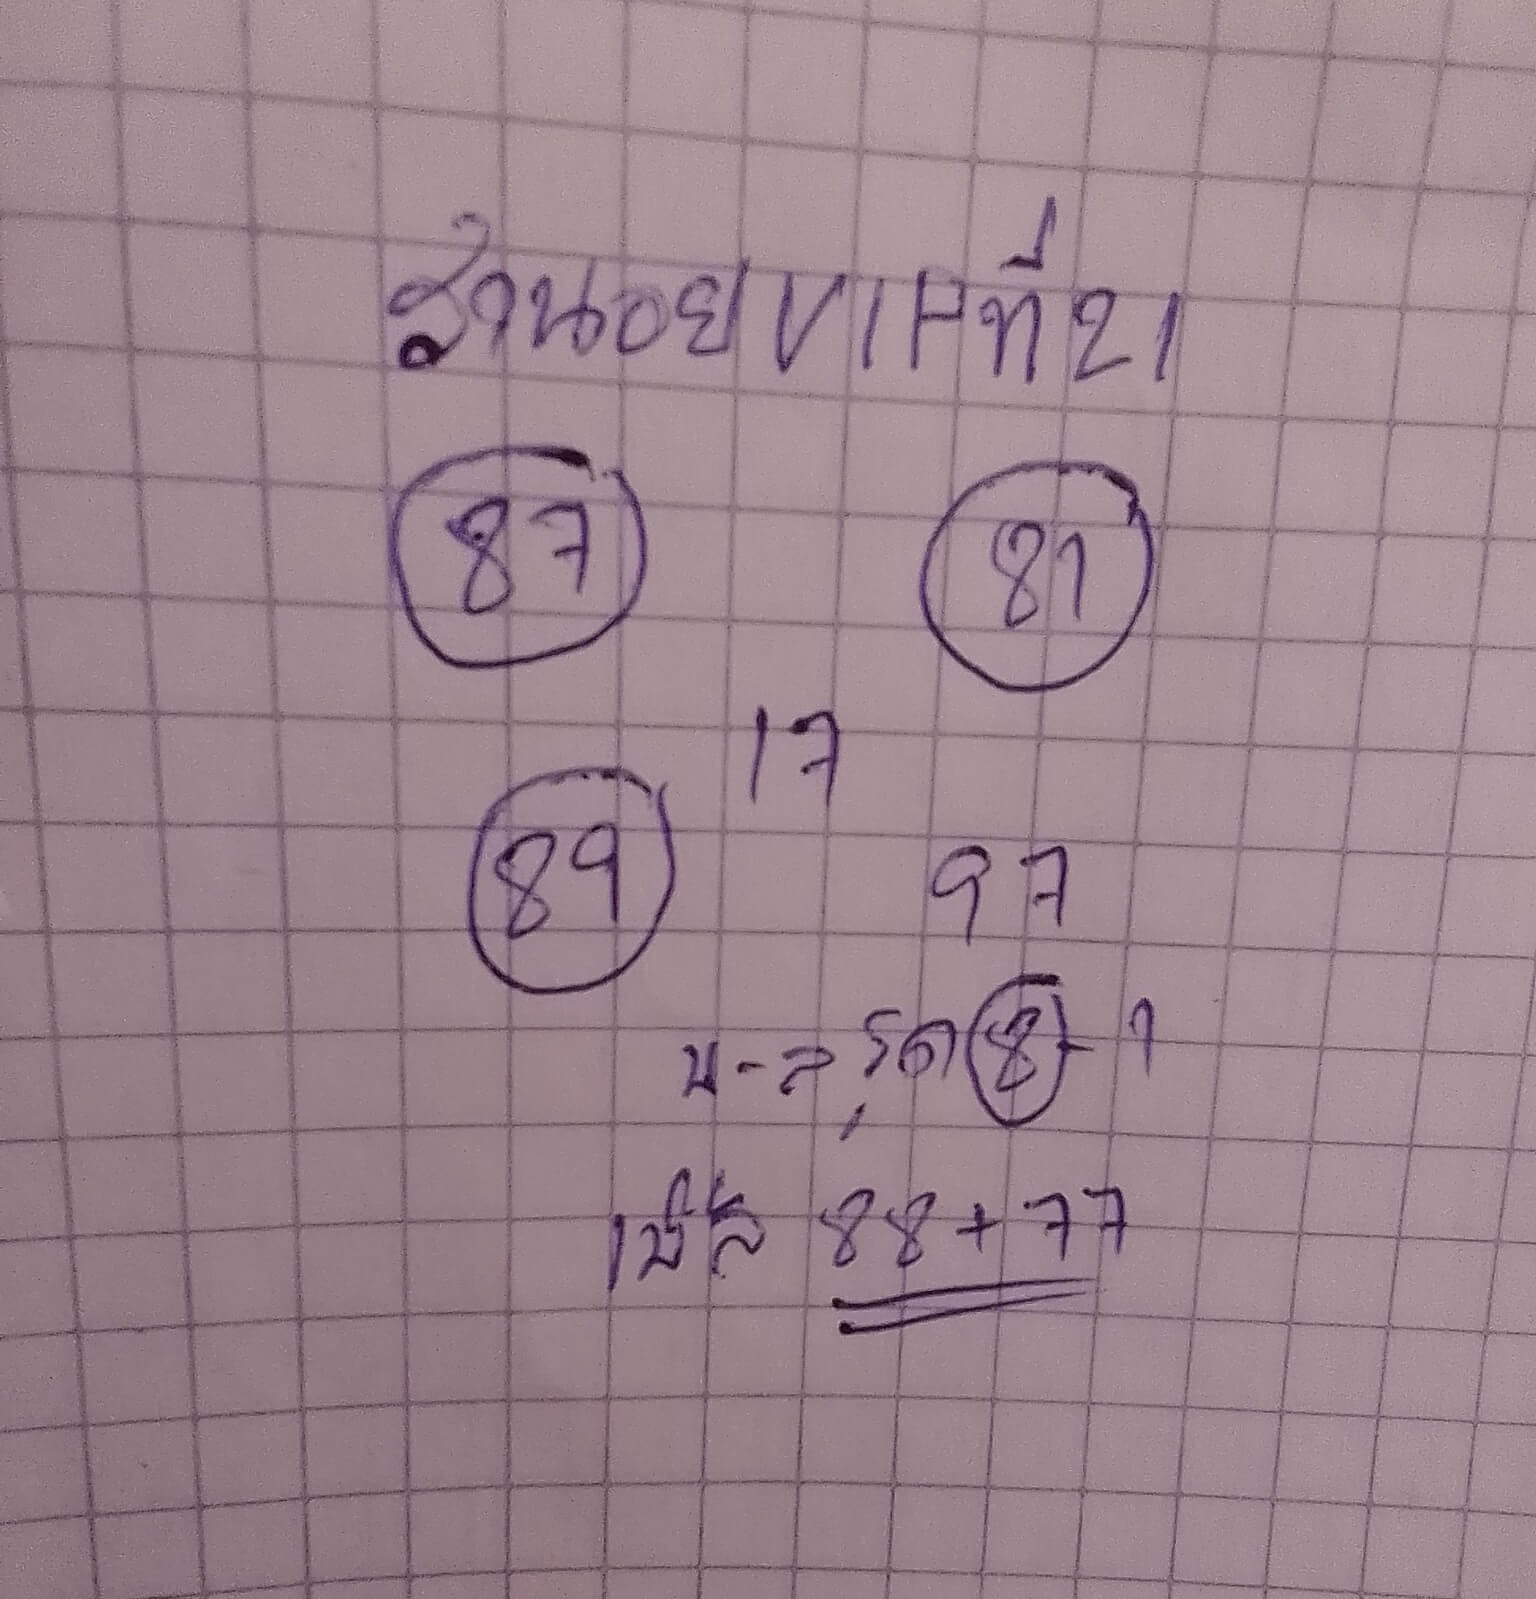 ฮานอยVIPที่21
87 81
17
89
97
บ-ล รูด 8-1
88+77